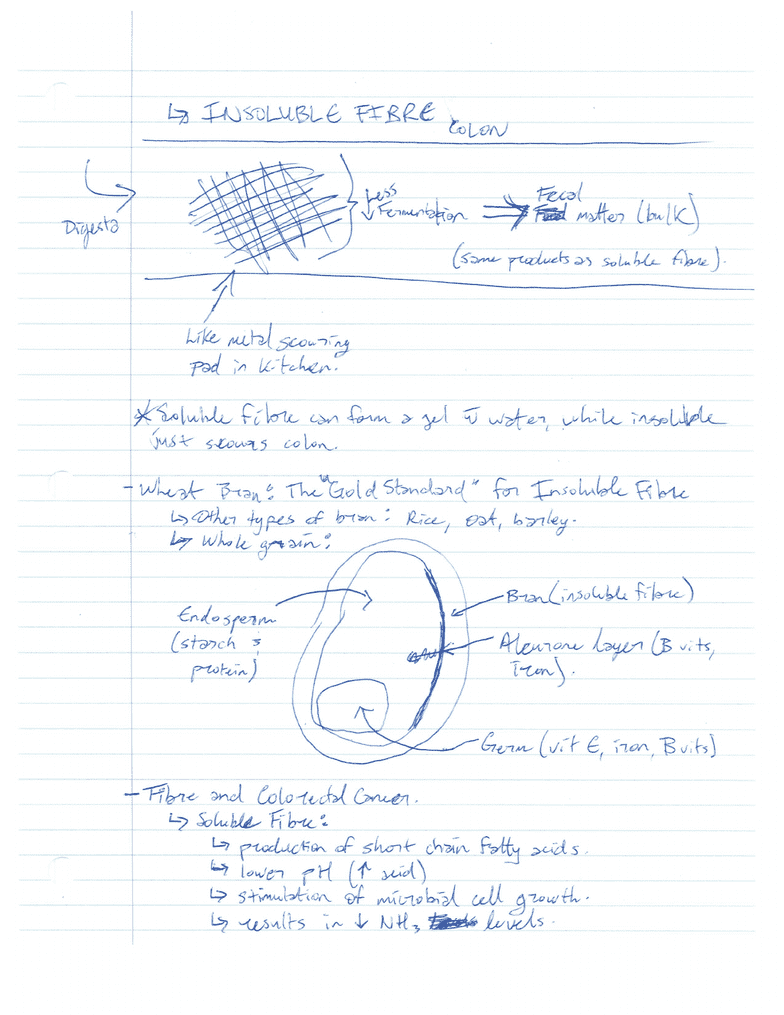 ↳ INSOLUBLE FIBRE
COLON
Digesta
Less
↓ Fermentation
Fecal
matter (bulk)
(same products as soluble fibre).
Like metal scouring
pad in kitchen.
* Soluble fibre can form a gel c̄ water, while insoluble
just scours colon.
- Wheat Bran: The "Gold Standard" for Insoluble Fibre
↳ Other types of bran: Rice, oat, barley.
↳ Whole grain:
Endosperm
(starch &
protein)
Bran (insoluble fibre)
Aleurone Layer (B vits,
iron).
Germ (vit E, iron, B vits)
- Fibre and Colorectal Cancer.
↳ Soluble Fibre:
↳ production of short chain fatty acids.
↳ lower pH (↑ acid)
↳ stimulation of microbial cell growth.
↳ results in ↓ NH₃ levels.